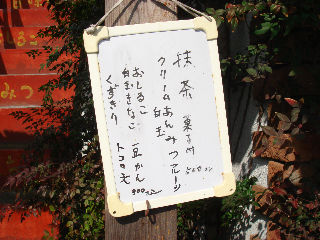 抹茶 菓子付
クリームあんみつフルーツ
白玉
おしるこ 豆かん
白玉きなこ トコロ天
くずきり
みつ